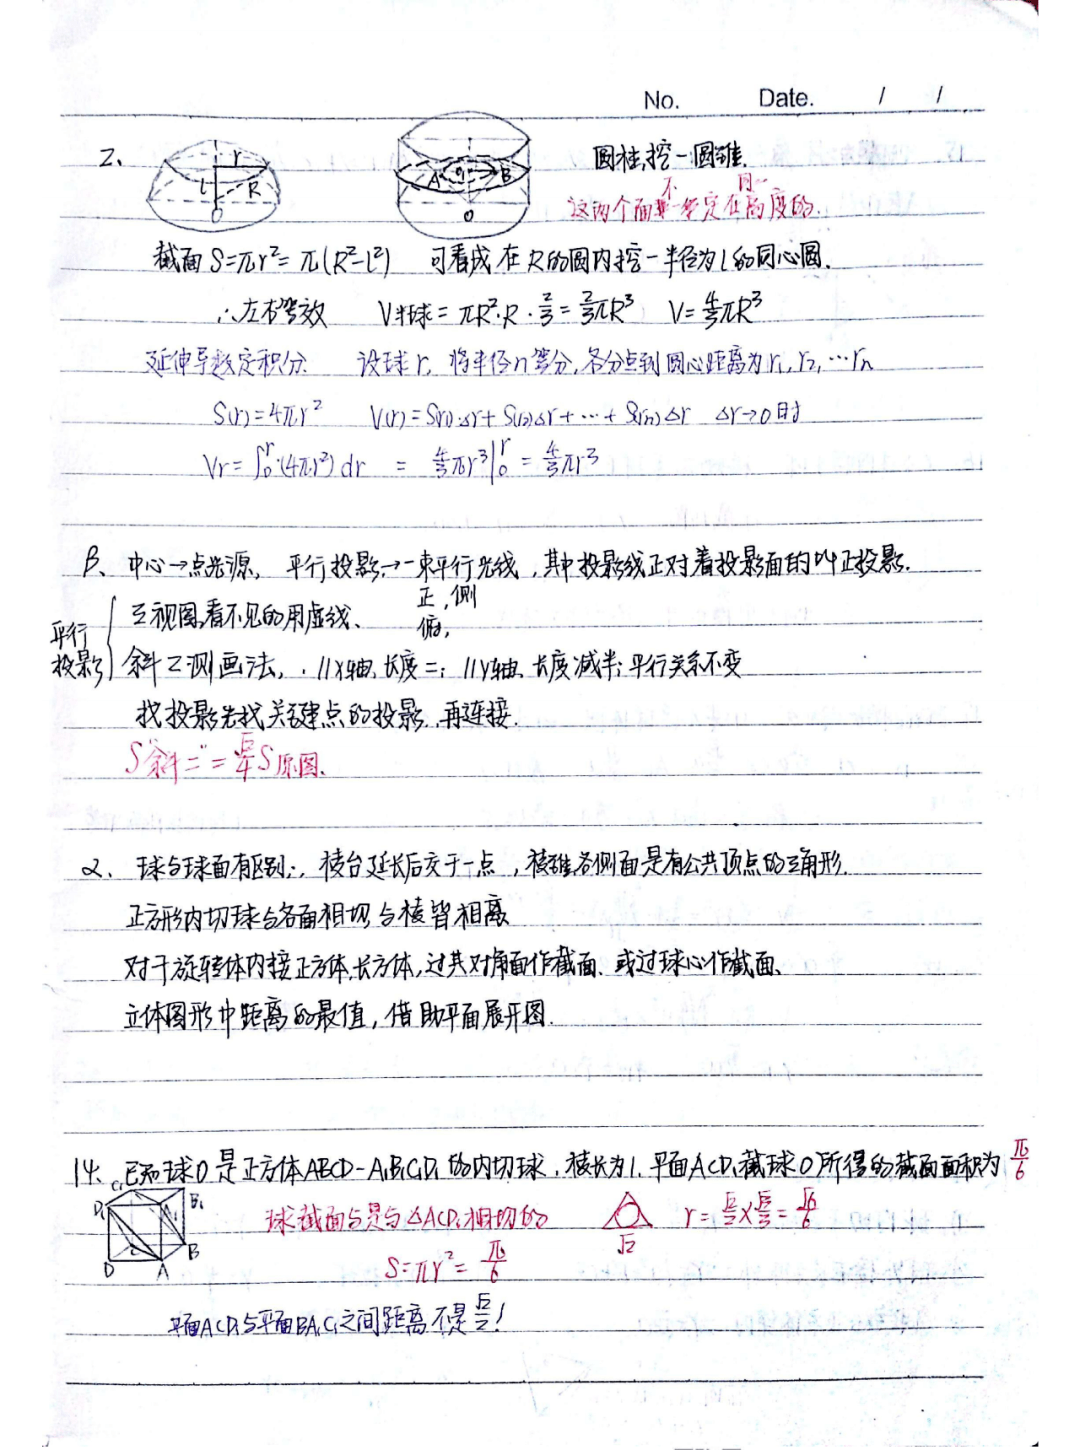 No. Date. / /
2、 r L R O A O B O 圆柱,挖一圆锥.
这两个面不一定在同一高度的.
截面 S=πr²=π(R²-l²) 可看成在R的圆内挖一半径为l的同心圆.
∴左右等效 V半球=πR²·R·2/3=2/3πR³ V=4/3πR³
延伸导数定积分. 设球r, 将半径n等分,各分点到圆心距离为r₁,r₂,…rn
S(r)=4πr² V(r)=S(r₁)Δr+S(r₂)Δr+…+S(rn)Δr Δr→0时
Vr=∫₀ʳ(4πr²)dr = 4/3πr³|₀ʳ = 4/3πr³
β、中心→点光源, 平行投影→一束平行光线,其中投影线正对着投影面的叫正投影.
平行投影
三视图,看不见的用虚线、 正,侧 俯,
斜二测画法, ·//x轴,长度=; //y轴,长度减半;平行关系不变
找投影先找关键点的投影,再连接.
S斜二=√2/4S原图.
α、球与球面有区别;棱台延长后交于一点,棱锥各侧面是有公共顶点的三角形.
正方形内切球与各面相切与棱皆相离
对于旋转体内接正方体,长方体,过其对角面作截面、或过球心作截面、
立体图形中距离的最值,借助平面展开图.
14. 已知球O是正方体ABCD-A₁B₁C₁D₁的内切球,棱长为1,平面ACD₁截球O所得的截面面积为π/6
C₁ D₁ B₁ A₁ C B D A 球截面与是与△ACD₁相切的 √2 r=√2/2×√3/3=√6/6
S=πr²=π/6
平面ACD₁与平面BA₁C₁之间距离不是√2/2!